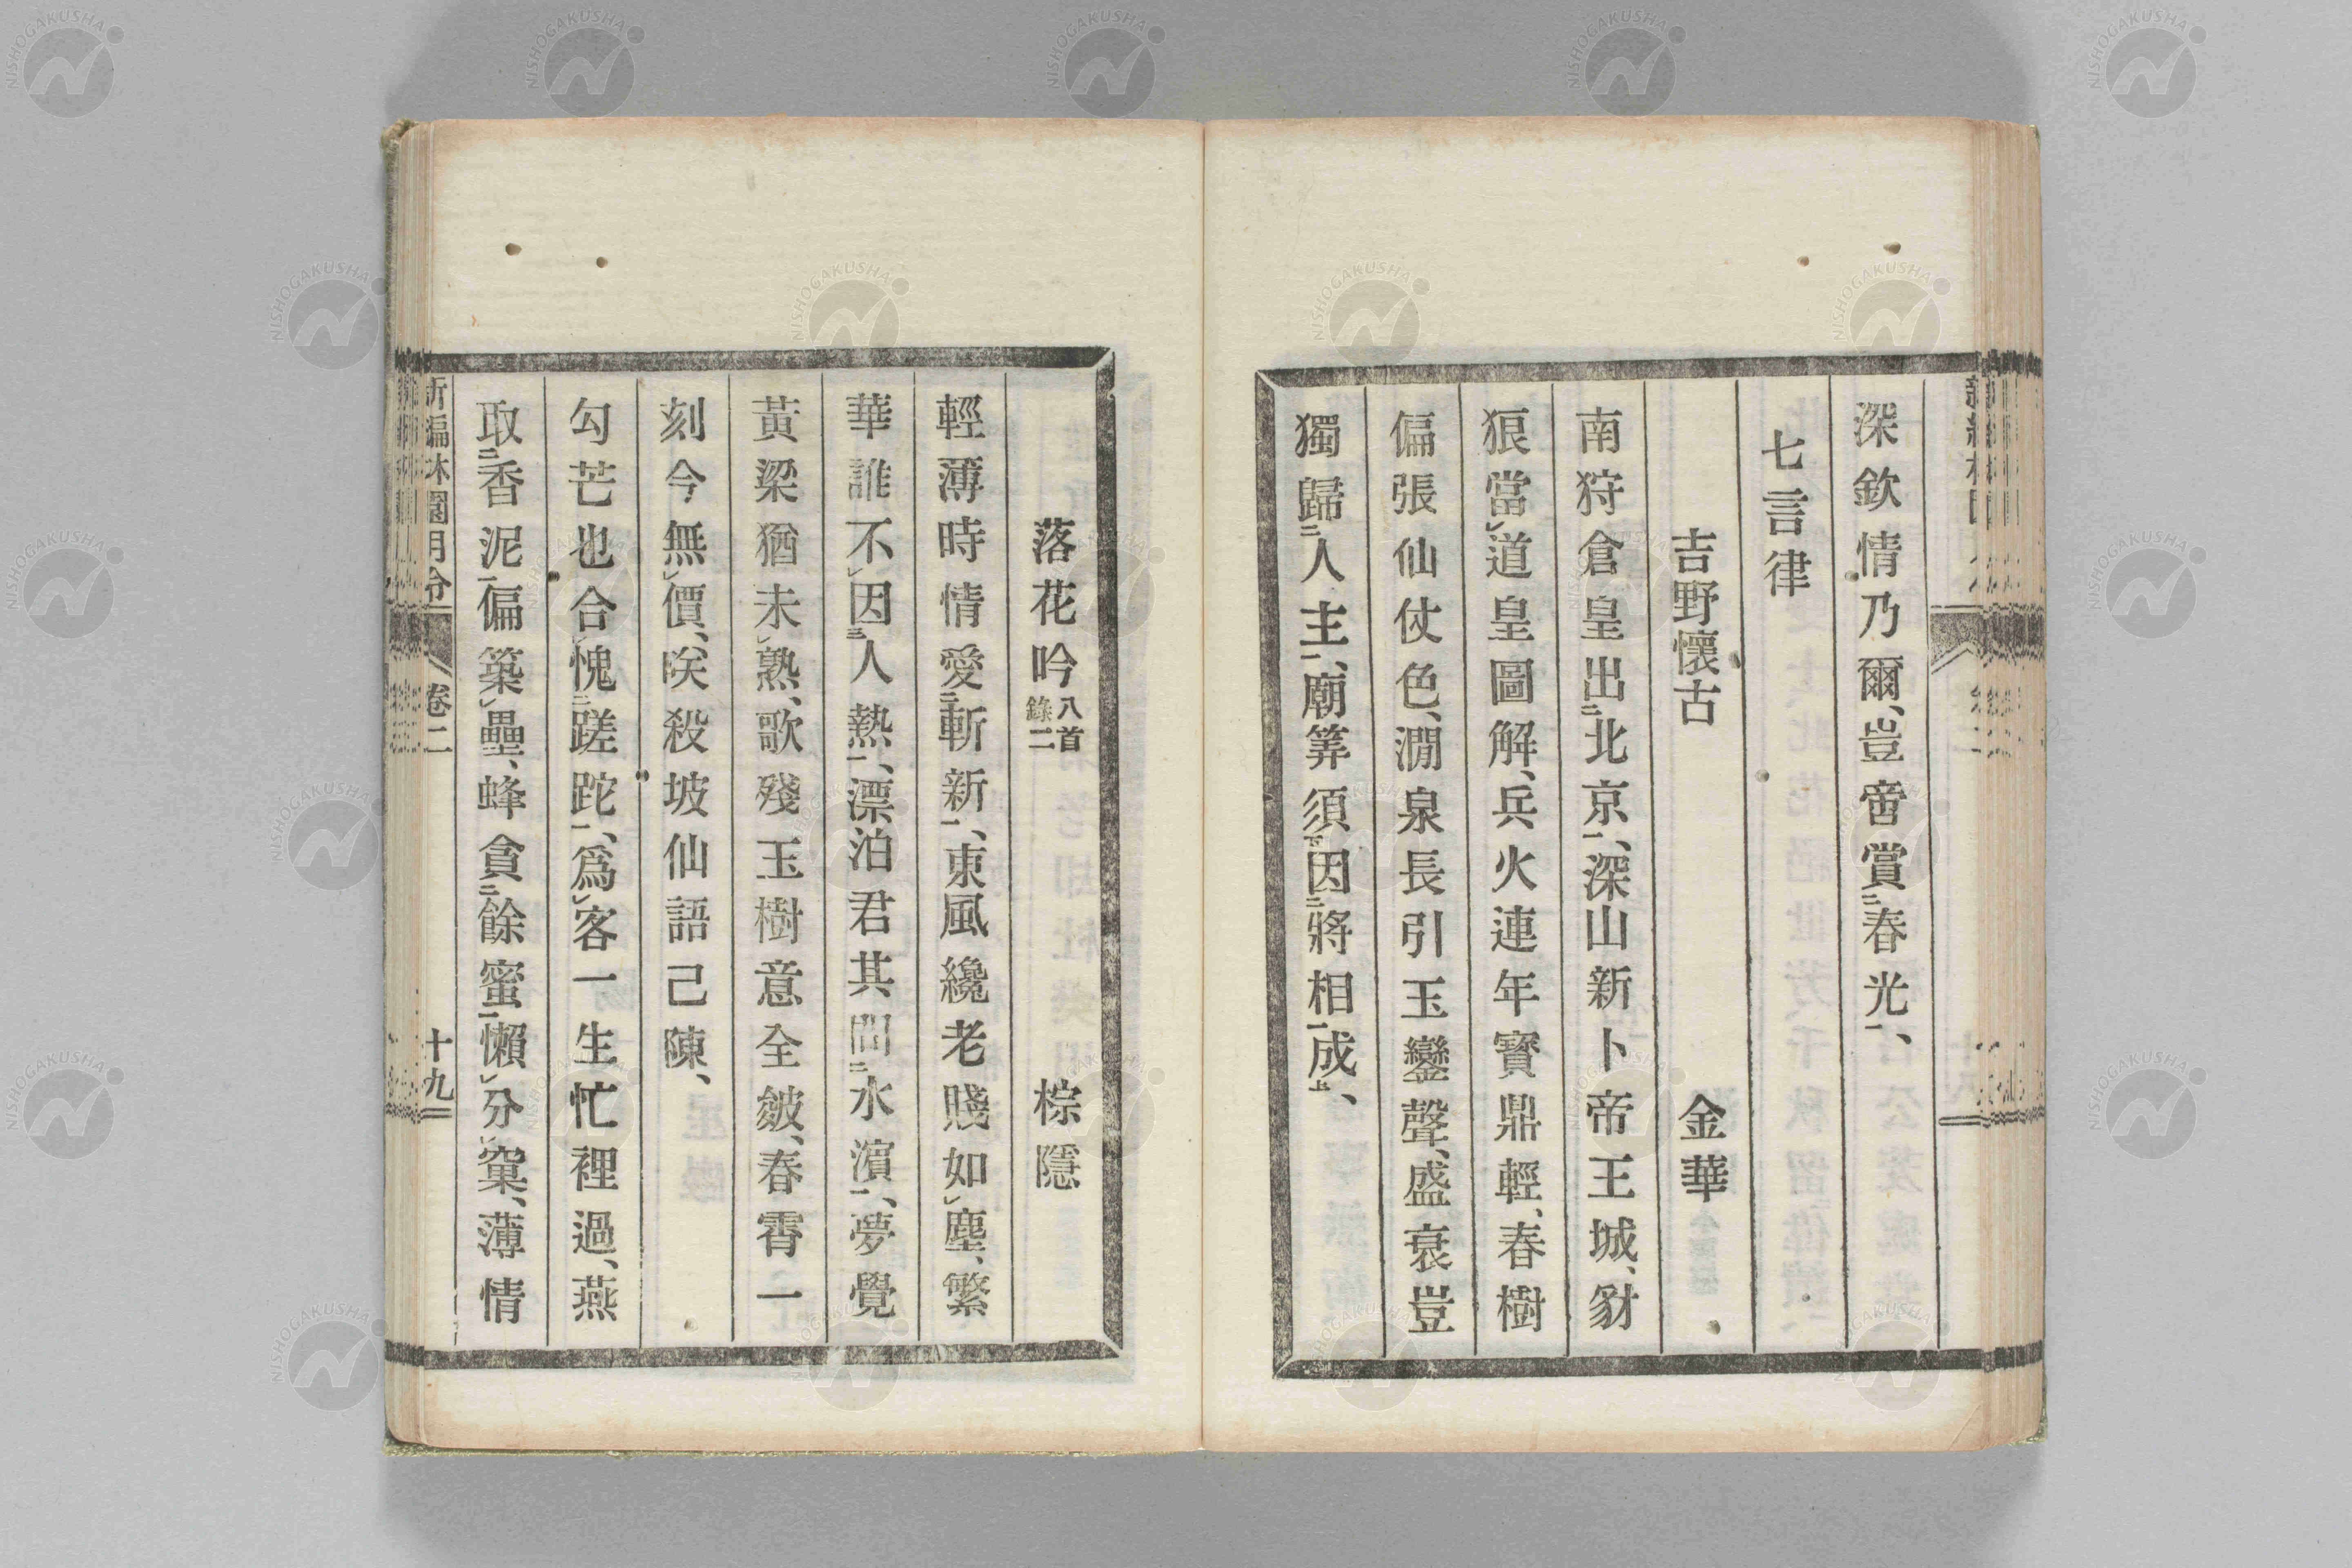 深欽情乃爾、豈啻賞二春光一、
七言律
吉野懷古　金華
南狩倉皇出二北京一、深山新卜帝王城、豺
狼當レ道皇圖解、兵火連年寶鼎輕、春樹
偏張仙仗色、澗泉長引玉鑾聲、盛衰豈
獨歸二人主一、廟筭須下因二將相一成上、
落花吟八首錄二　棕隱
輕薄時情愛二斬新一、東風纔老賤如レ塵、繁
華誰不レ因二人熱一、漂泊君其問二水濱一、夢覺
黃粱猶未レ熟、歌殘玉樹意全皴、春霄一
刻今無レ價、咲殺坡仙語已陳、
勾芒也合レ愧二蹉跎一、爲レ客一生忙裡過、燕
取二香泥一偏築レ壘、蜂貪二餘蜜一懶レ分レ窠、薄情
新編林園月令　卷二　十九